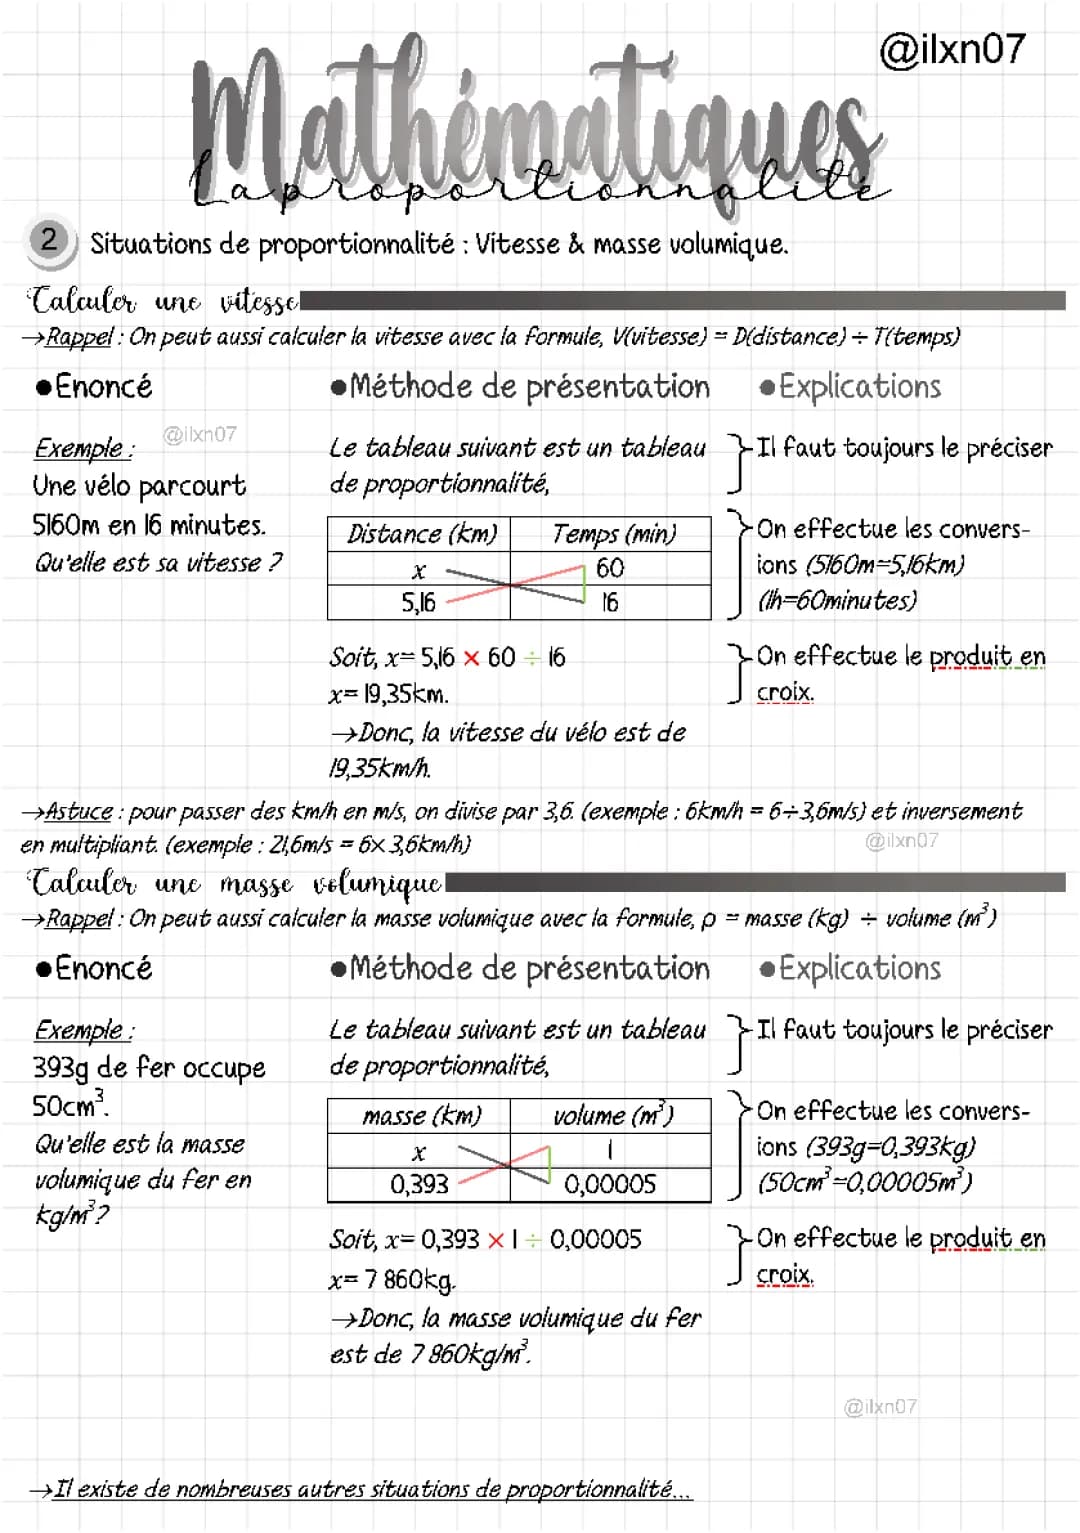 @ilxn07
Mathématiques
La proportionnalité
2 Situations de proportionnalité : Vitesse & masse volumique.
Calculer une vitesse
→Rappel : On peut aussi calculer la vitesse avec la formule, V(vitesse) = D(distance) ÷ T(temps)
●Enoncé ●Méthode de présentation ●Explications
@ilxn07
Exemple :
Une vélo parcourt
5160m en 16 minutes.
Qu'elle est sa vitesse ?
Le tableau suivant est un tableau
de proportionnalité,
Distance (km) Temps (min)
x 60
5,16 16
Soit, x= 5,16 × 60 ÷ 16
x= 19,35km.
→Donc, la vitesse du vélo est de
19,35km/h.
Il faut toujours le préciser
On effectue les convers-
ions (5160m=5,16km)
(1h=60minutes)
On effectue le produit en
croix.
→Astuce : pour passer des km/h en m/s, on divise par 3,6. (exemple : 6km/h = 6÷3,6m/s) et inversement
en multipliant. (exemple : 21,6m/s = 6× 3,6km/h)
@ilxn07
Calculer une masse volumique
→Rappel : On peut aussi calculer la masse volumique avec la formule, ρ = masse (kg) ÷ volume (m³)
●Enoncé ●Méthode de présentation ●Explications
Exemple :
393g de fer occupe
50cm³.
Qu'elle est la masse
volumique du fer en
kg/m³?
Le tableau suivant est un tableau
de proportionnalité,
masse (km) volume (m³)
x 1
0,393 0,00005
Soit, x= 0,393 × 1 ÷ 0,00005
x= 7 860kg.
→Donc, la masse volumique du fer
est de 7 860kg/m³.
Il faut toujours le préciser
On effectue les convers-
ions (393g=0,393kg)
(50cm³=0,00005m³)
On effectue le produit en
croix.
@ilxn07
→Il existe de nombreuses autres situations de proportionnalité...